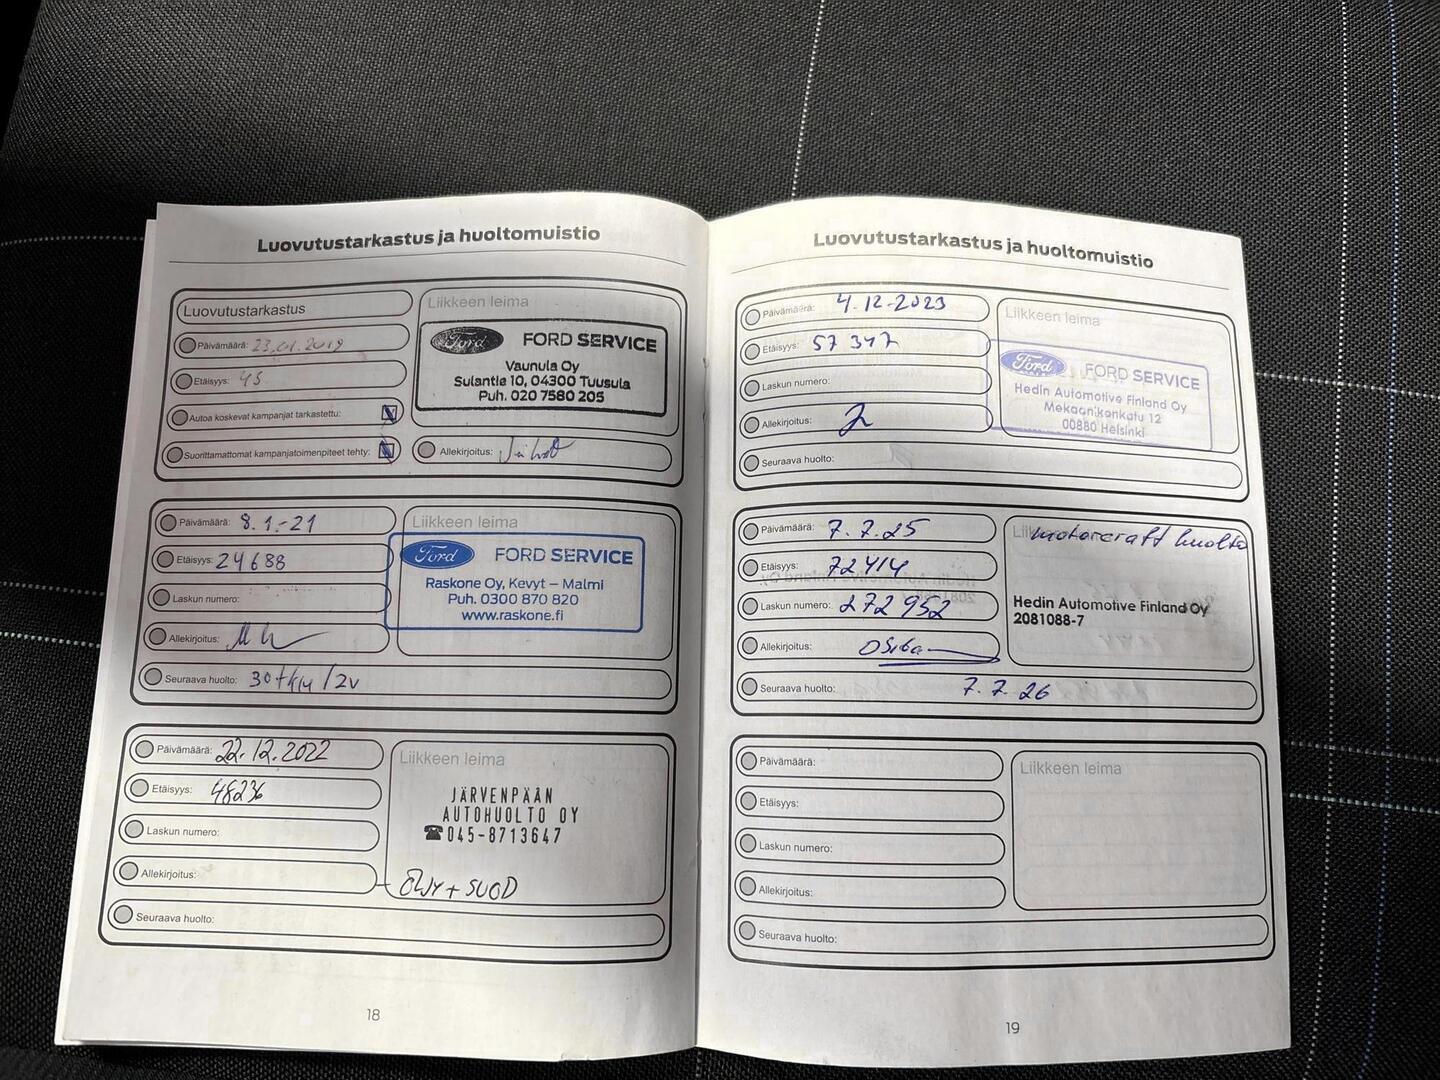 Luovutustarkastus ja huoltomuistio
Luovutustarkastus
Päivämäärä: 23.01.2019
Etäisyys: 45
Autoa koskevat kampanjat tarkastettu:
Suorittamattomat kampanjatoimenpiteet tehty:
Liikkeen leima
Ford FORD SERVICE
Vaunula Oy
Sulantie 10, 04300 Tuusula
Puh. 020 7580 205
Allekirjoitus:
Päivämäärä: 8.1.-21
Etäisyys: 24688
Laskun numero:
Allekirjoitus:
Seuraava huolto: 30tkm/2v
Liikkeen leima
Ford FORD SERVICE
Raskone Oy, Kevyt – Malmi
Puh. 0300 870 820
www.raskone.fi
Päivämäärä: 22.12.2022
Etäisyys: 48236
Laskun numero:
Allekirjoitus:
Seuraava huolto:
Liikkeen leima
JÄRVENPÄÄN
AUTOHUOLTO OY
☎045-8713647
ÖLJY + SUOD
18
Luovutustarkastus ja huoltomuistio
Päivämäärä: 4.12-2023
Etäisyys: 57347
Laskun numero:
Allekirjoitus:
Seuraava huolto:
Liikkeen leima
Ford FORD SERVICE
Hedin Automotive Finland Oy
Mekaanikonkatu 12
00880 Helsinki
Päivämäärä: 7.7.25
Etäisyys: 72414
Laskun numero: 272952
Allekirjoitus:
Seuraava huolto: 7.7.26
motorcraft huolto
Hedin Automotive Finland Oy
2081088-7
Päivämäärä:
Etäisyys:
Laskun numero:
Allekirjoitus:
Seuraava huolto:
Liikkeen leima
19